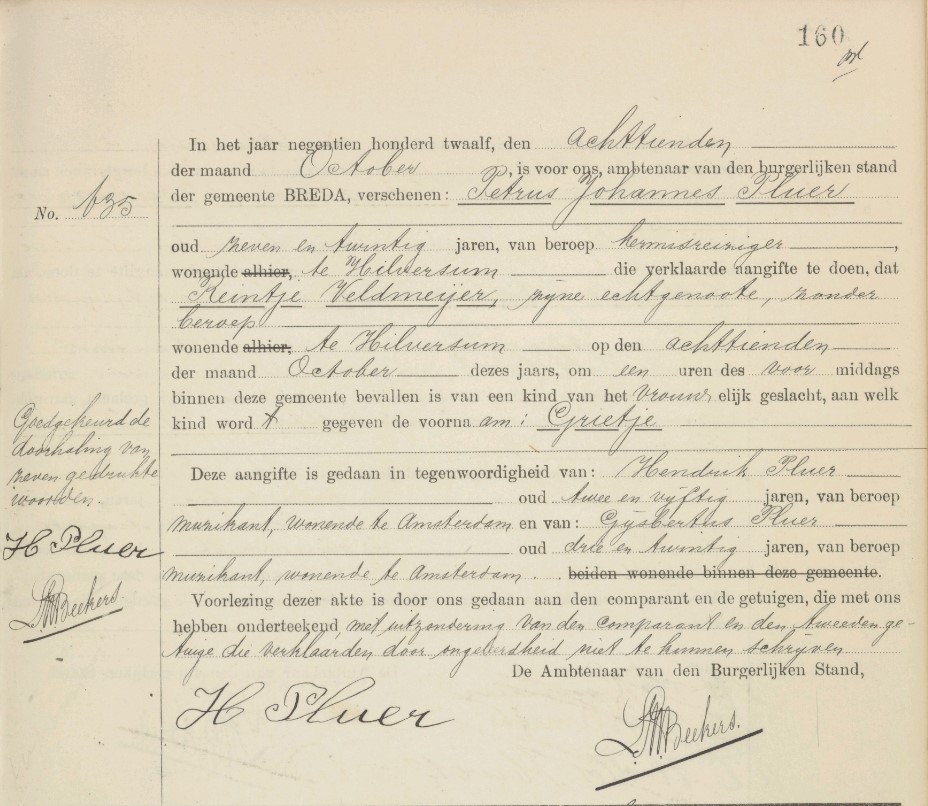 160
In het jaar negentien honderd twaalf, den achttienden
der maand October, is voor ons, ambtenaar van den burgerlijken stand
der gemeente BREDA, verschenen: Petrus Johannes Pluer
No. 635
oud zeven en twintig jaren, van beroep kermisreiziger,
wonende alhier, te Hilversum die verklaarde aangifte te doen, dat
Reintje Veldmeijer, zijne echtgenoote, zonder
beroep
wonende alhier, te Hilversum op den achttienden
der maand October dezes jaars, om een uren des voor middags
binnen deze gemeente bevallen is van een kind van het vrouwelijk geslacht, aan welk
kind word t gegeven de voornaam: Grietje
Goedgekeurd de
doorhaling van
zeven gedrukte
woorden.
H Pluer
Beekers.
Deze aangifte is gedaan in tegenwoordigheid van: Hendrik Pluer
oud twee en vijftig jaren, van beroep
muzikant, wonende te Amsterdam en van: Gijsbertus Pluer
oud drie en twintig jaren, van beroep
muzikant, wonende te Amsterdam beiden wonende binnen deze gemeente.
Voorlezing dezer akte is door ons gedaan aan den comparant en de getuigen, die met ons
hebben onderteekend, met uitzondering van den comparant en den tweeden ge-
tuige die verklaarden door ongeleerdheid niet te kunnen schrijven
De Ambtenaar van den Burgerlijken Stand,
H Pluer
Beekers.